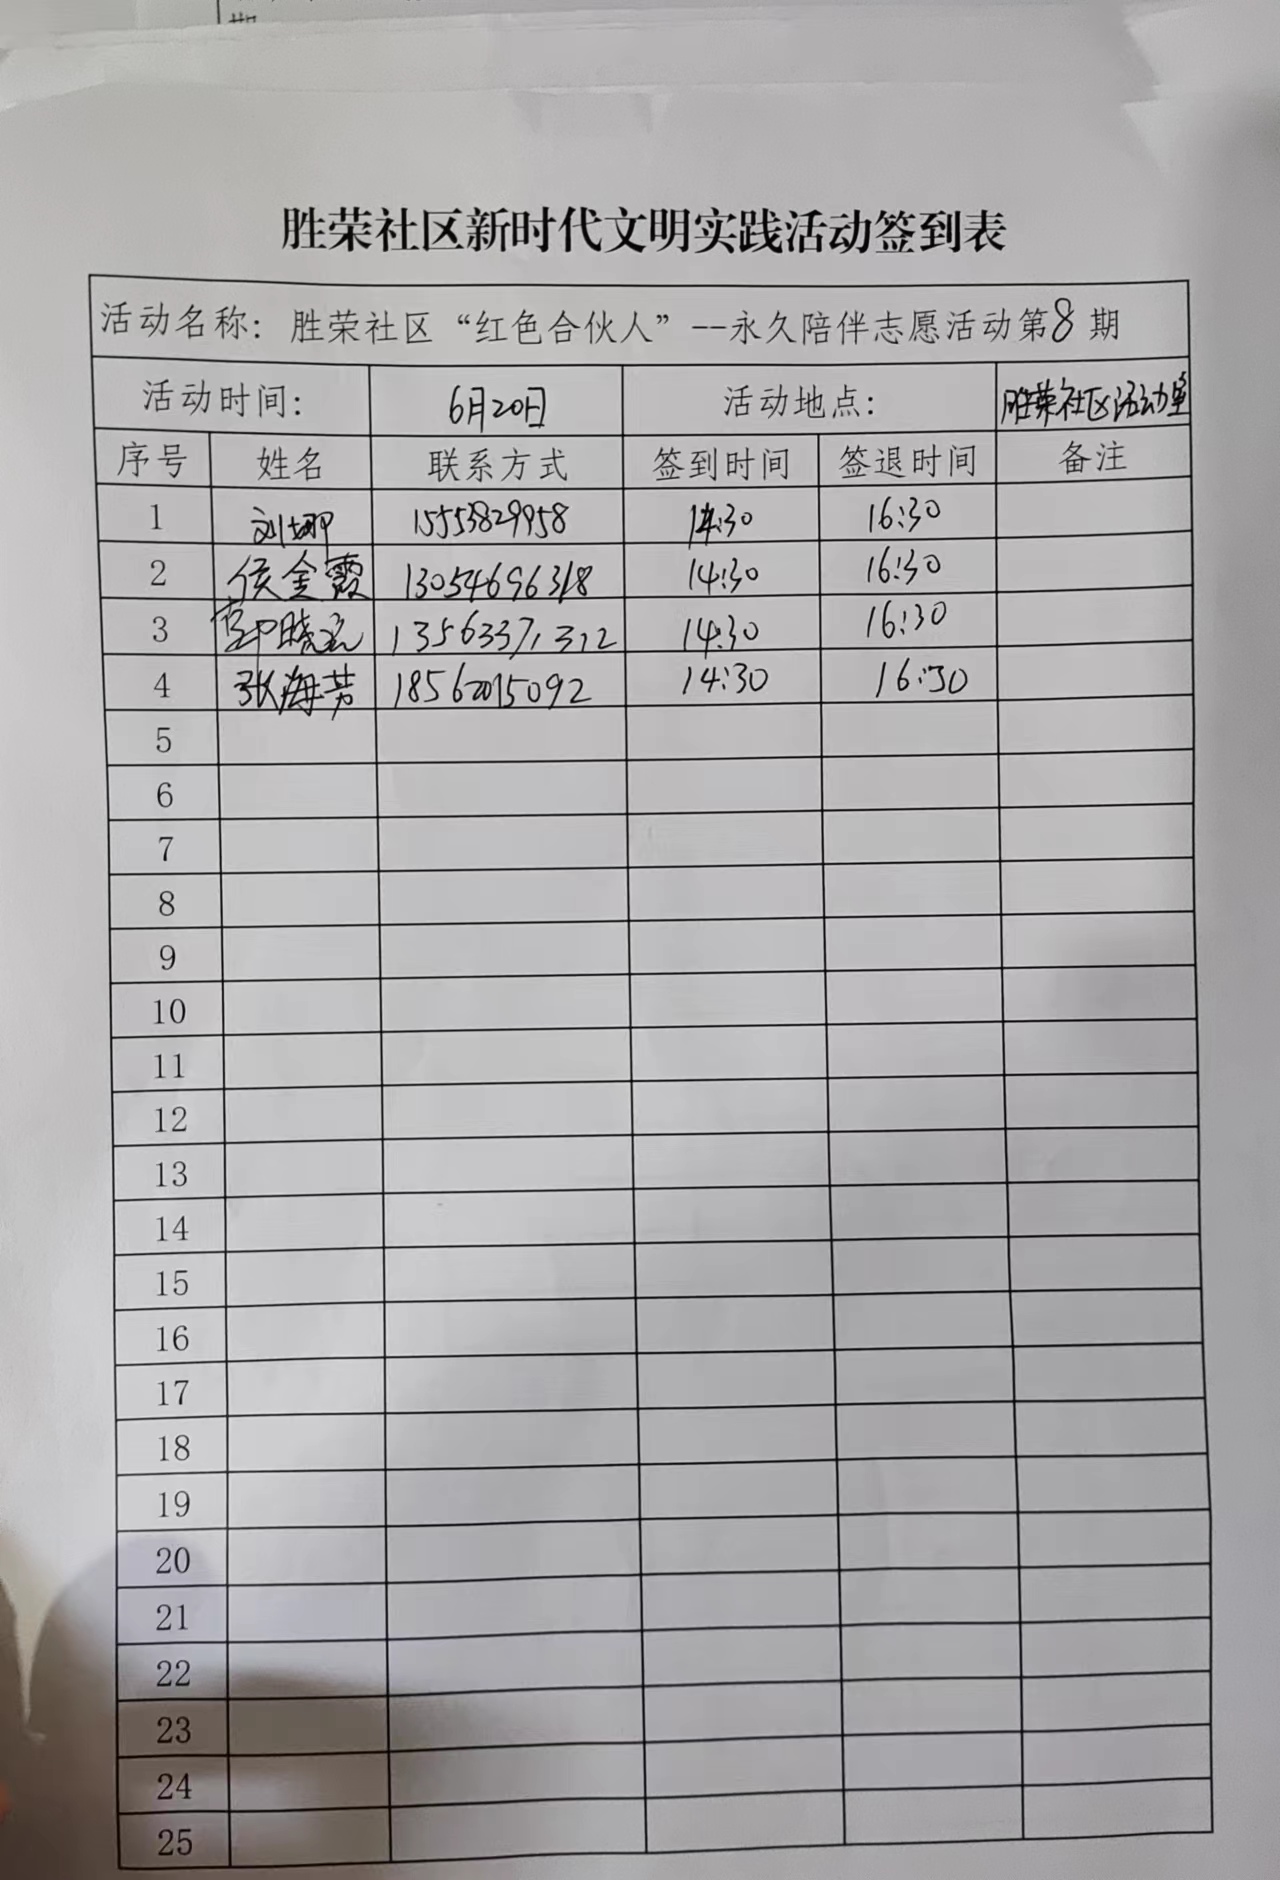 期
胜荣社区新时代文明实践活动签到表
活动名称：胜荣社区“红色合伙人”--永久陪伴志愿活动第8期
活动时间： 6月20日 活动地点： 胜荣社区活动室
序号 姓名 联系方式 签到时间 签退时间 备注
1 刘娜 15553829958 14:30 16:30
2 侯金霞 13054696318 14:30 16:30
3 13563371312 14:30 16:30
4 张海芳 18562015092 14:30 16:30
5
6
7
8
9
10
11
12
13
14
15
16
17
18
19
20
21
22
23
24
25